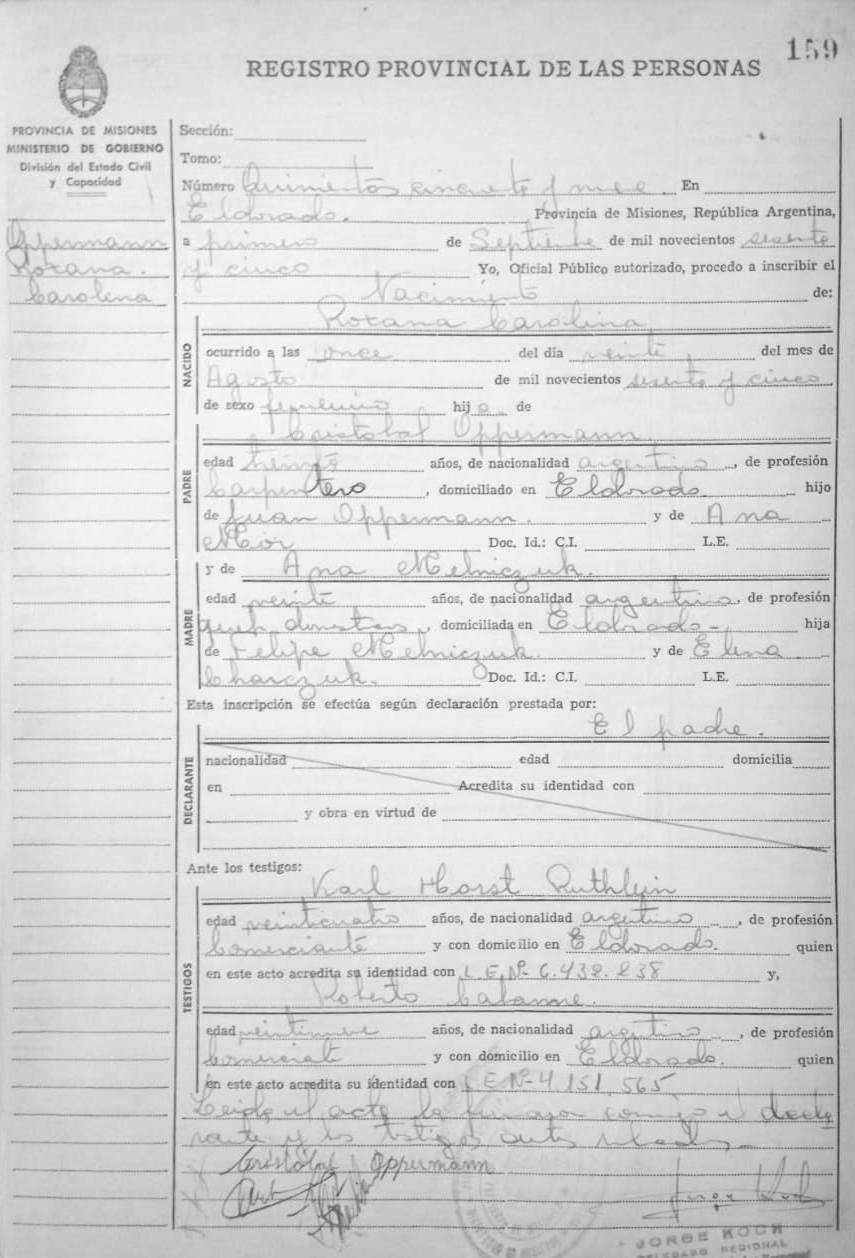 159
REGISTRO PROVINCIAL DE LAS PERSONAS
PROVINCIA DE MISIONES
MINISTERIO DE GOBIERNO
División del Estado Civil
y Capacidad
Oppermann
Roxana.
Carolina
Sección:
Tomo:
Número Quinientos cincuenta y nueve En
Eldorado. Provincia de Misiones, República Argentina,
a primero de Septiembre de mil novecientos sesenta
y cinco Yo, Oficial Público autorizado, procedo a inscribir el
Nacimiento de:
Roxana Carolina
NACIDO
ocurrido a las once del día veinte del mes de
Agosto de mil novecientos sesenta y cinco
de sexo femenino hija de
Cristobal Oppermann.
PADRE
edad treinta años, de nacionalidad argentino, de profesión
Carpintero, domiciliado en Eldorado hijo
de Juan Oppermann. y de Ana
Doc. Id.: C.I. L.E.
y de Ana Melniczuk.
MADRE
edad veinte años, de nacionalidad argentina, de profesión
domiciliada en Eldorado.- hija
de Felipe Melniczuk. y de Elena
Charczuk. Doc. Id.: C.I. L.E.
Esta inscripción se efectúa según declaración prestada por:
El padre.
DECLARANTE
nacionalidad edad domicilia
en Acredita su identidad con
y obra en virtud de
Ante los testigos:
Karl Horst Ruthlein
TESTIGOS
edad veinticuatro años, de nacionalidad argentino, de profesión
Comerciante y con domicilio en Eldorado. quien
en este acto acredita su identidad con L.E.Nº 6.432.238 y,
Roberto Calame.
edad veintinueve años, de nacionalidad argentino, de profesión
Comerciante y con domicilio en Eldorado. quien
en este acto acredita su identidad con L.E.Nº 4.151.565
Leida el acta la firman conmigo el decla
rante y los testigos
Cristóbal Oppermann
JORGE KOCH
DELEGADO REGIONAL